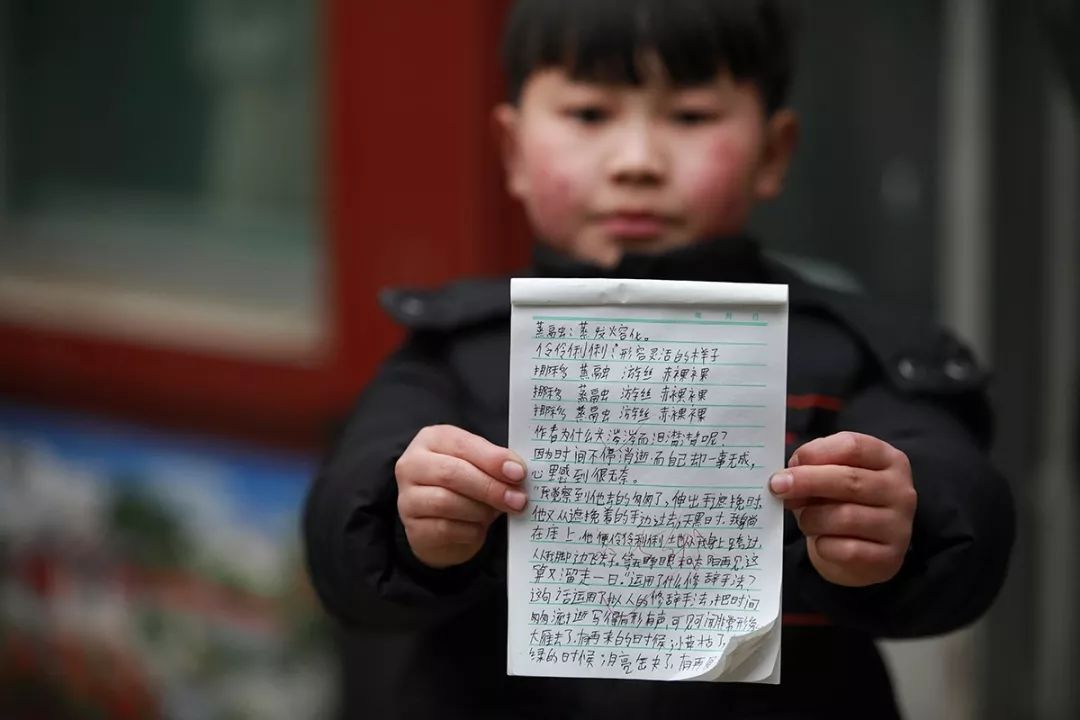 蒸融：蒸发熔化。
伶伶俐俐：形容灵活的样子
挪移 蒸融 游丝 赤裸裸
挪移 蒸融 游丝 赤裸裸
挪移 蒸融 游丝 赤裸裸
作者为什么头涔涔而泪潸潸呢？
因为时间不停消逝而自己却一事无成，
心里感到很无奈。
"我觉察到他去的匆匆了，伸出手遮挽时，
他又从遮挽着的手边过去，天黑时，我躺
在床上，他便伶伶俐俐地从我身上跨过，
从我脚边飞去了，等我睁眼和太阳再见，这
算又溜走一日。"运用了什么修辞手法？
这句话运用了拟人的修辞手法，把时间
的流逝写得有形有声，可见时间非常形象
大雁去了，有再来的的时候，小草枯了，
绿的时候；月亮缺了，有再